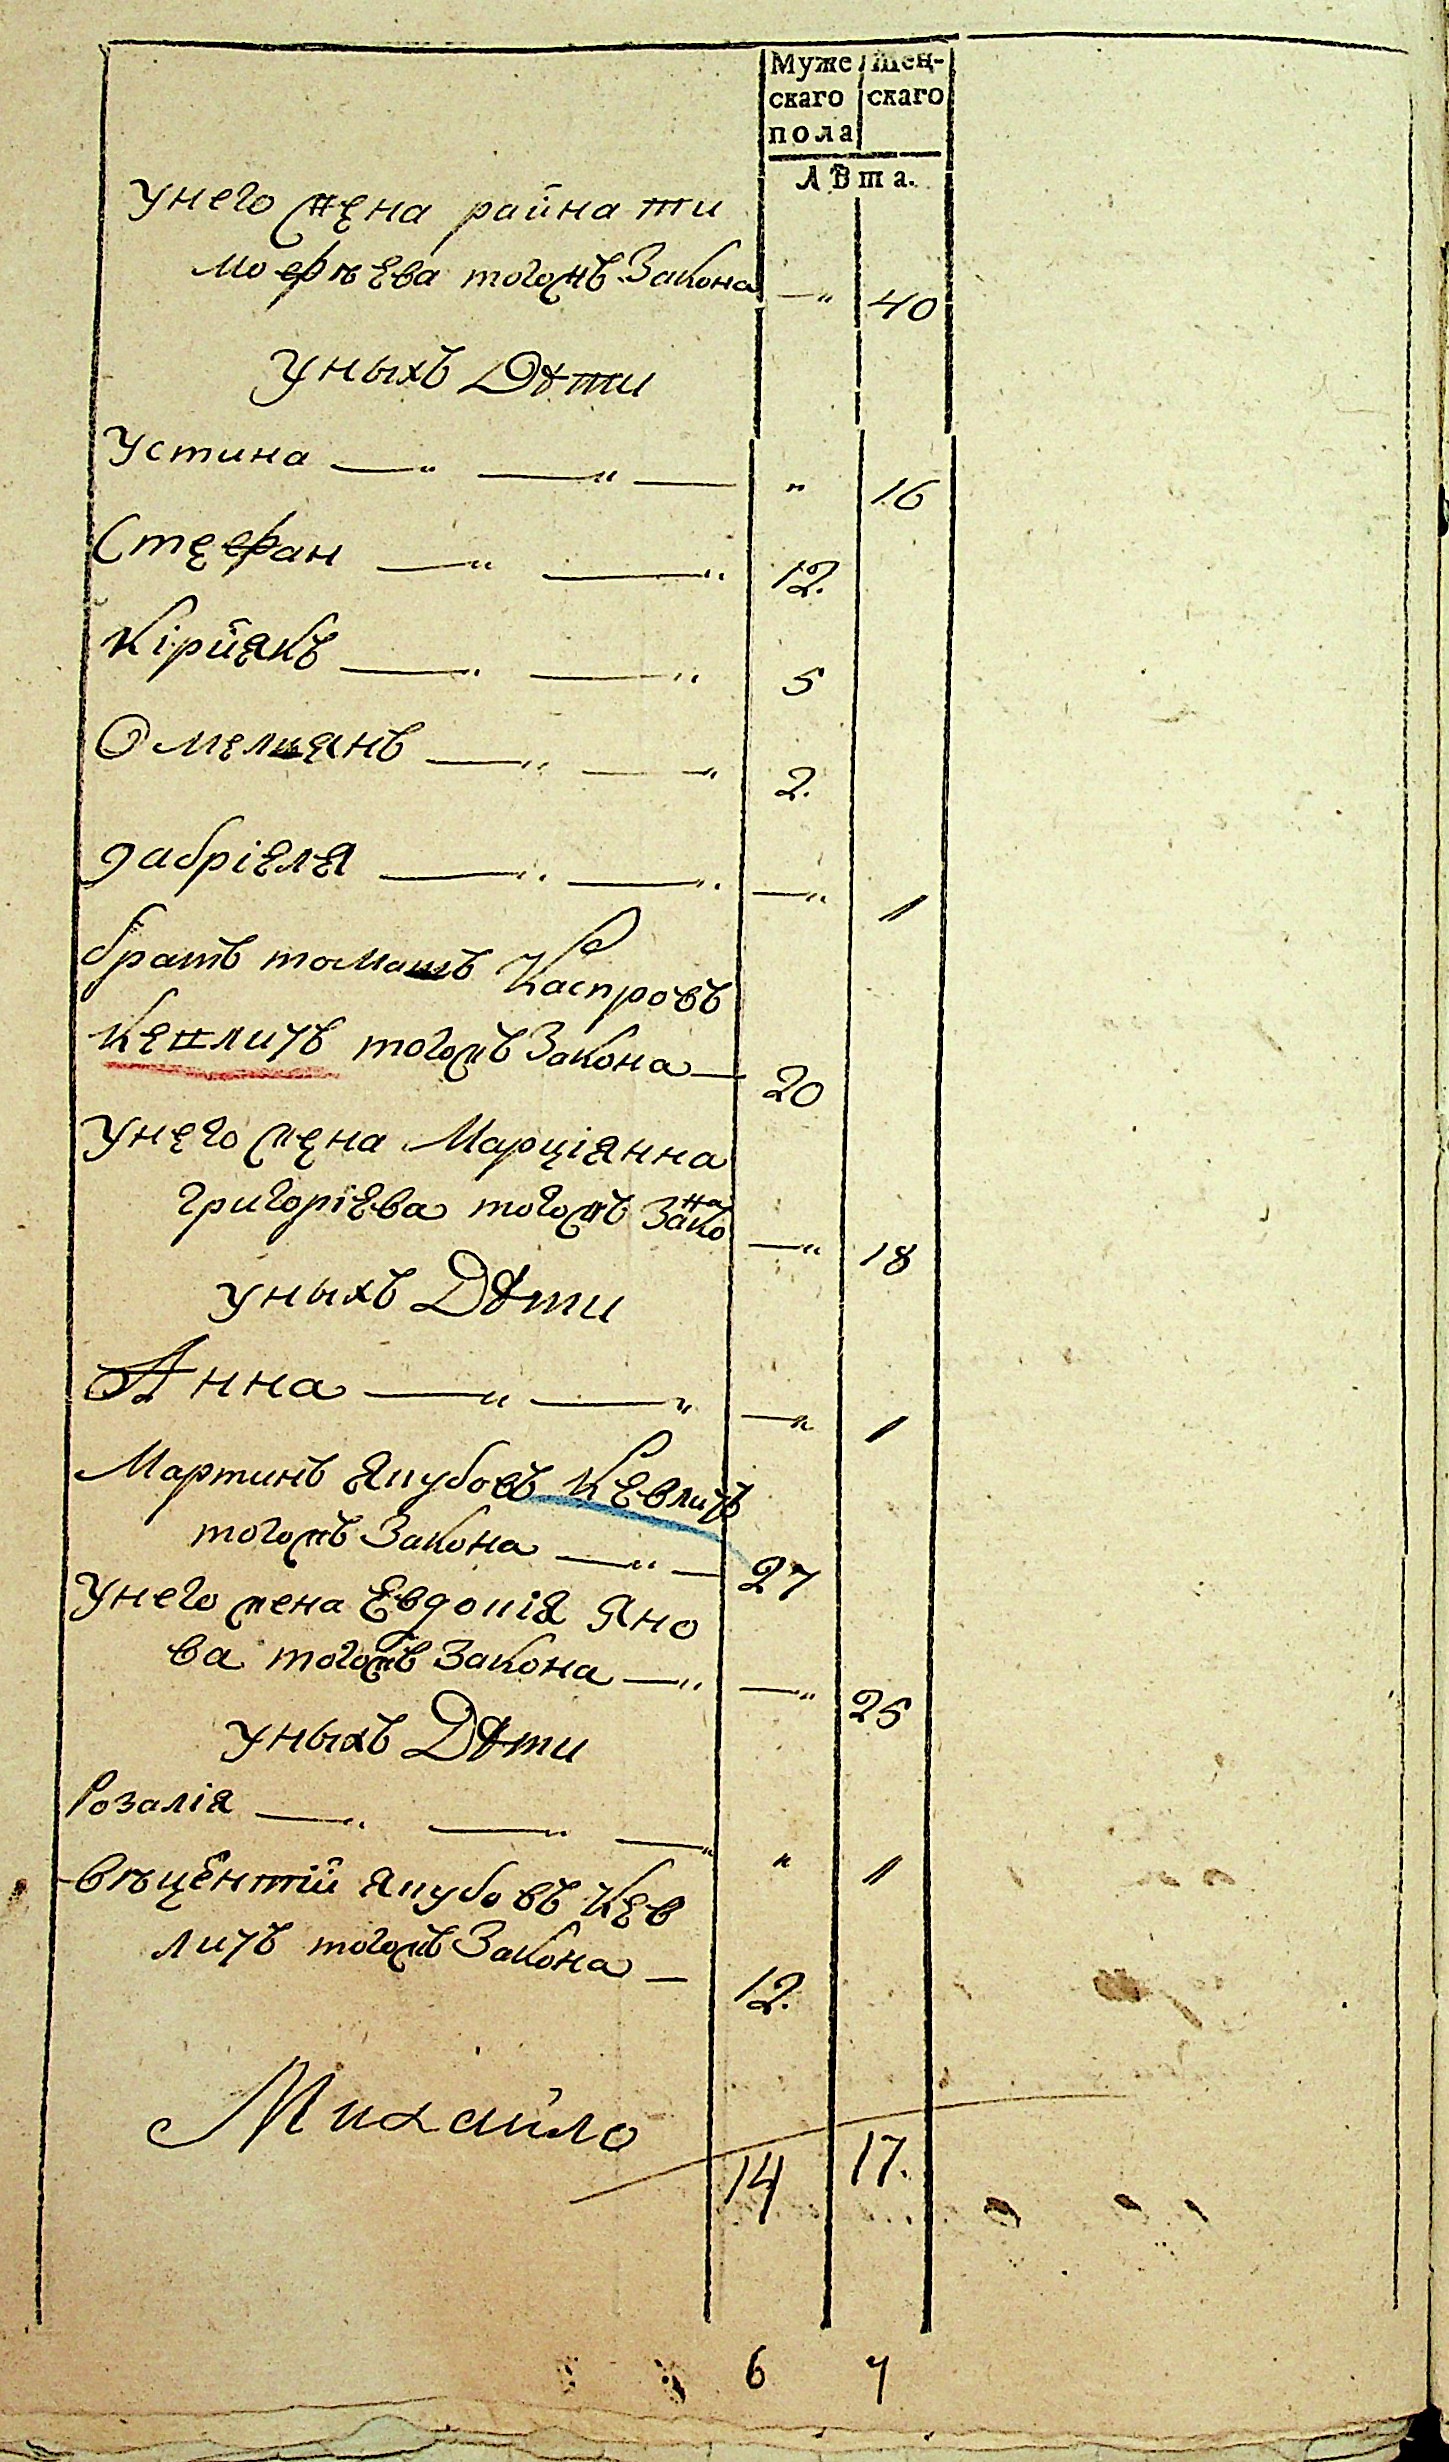 Муже Жен-
скаго скаго
пола
Лѣта.
унего жена райна ти
мофѣева тогожъ Закона —„ 40
уныхъ Дѣти
Устина —„ —„ — „ 16
Стефан —„ —„ 12.
Кірйякъ —„ —„ 5
Омелиянъ —„ —„ 2.
габріеля —„ —„ —„ 1
братъ томашъ Каспровъ
Кежличъ тогожъ Закона — 20
унего жена Марціянна
григоріева тогожъ Закона —„ 18
уныхъ Дѣти
Анна —„ —„ —„ 1
Мартинъ Якубовъ Кевличъ
тогожъ Закона —„ — 27
унего жена Евдокія Яно
ва тогожъ Закона —„ —„ 25
уныхъ Дѣти
Розалія —„ —„ —„ „ 1
вѣцентій Якубовъ Кев
личъ тогожъ Закона — 12.
Михайло
14 17.
6 7